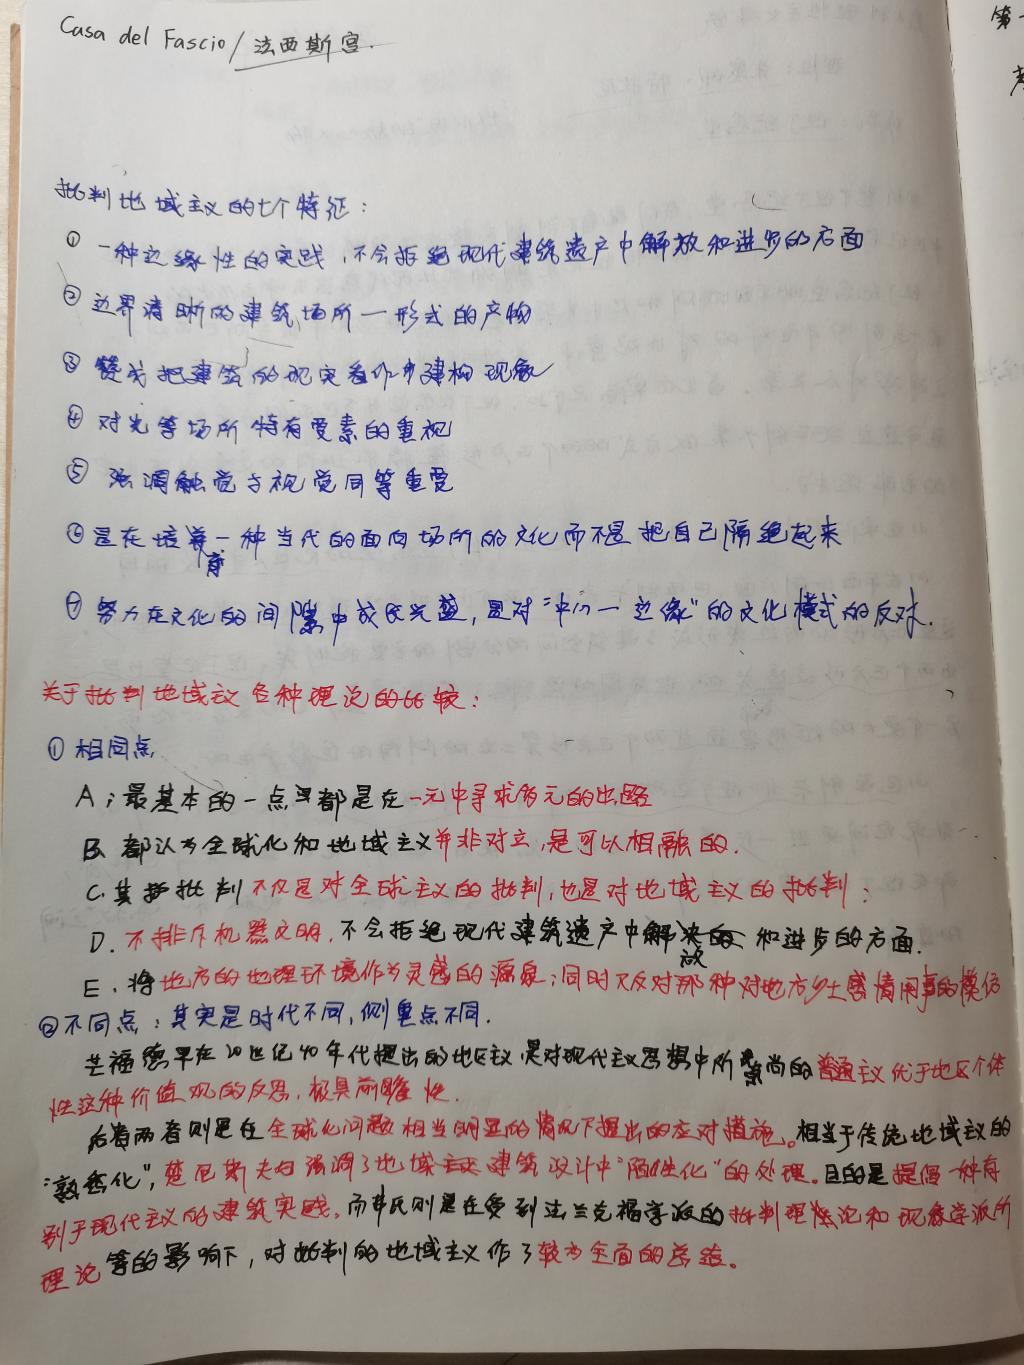 Casa del Fascio/法西斯宫.
批判地域主义的七个特征：
① 一种边缘性的实践，不会拒绝现代建筑遗产中解放和进步的方面
② 边界清晰的建筑场所—形式的产物
③ 赞成把建筑的现实看作中建构现象
④ 对光等场所特有要素的重视
⑤ 强调触觉与视觉同等重要
⑥ 是在培育一种当代的面向场所的文化而不是把自己隔绝起来
⑦ 努力在文化的间隙中成长兴盛，是对"中心—边缘"的文化模式的反对.
关于批判地域主义各种理论的比较：
① 相同点
A；最基本的一点都是在一元中寻求多元的出路
B. 都认为全球化和地域主义并非对立，是可以相融的.
C. 其批判不仅是对全球主义的批判，也是对地域主义的批判；
D. 不排斥机器文明，不会拒绝现代建筑遗产中解放的和进步的方面.
E. 将地方的地理环境作为灵感的源泉；同时又反对那种对地方乡土感情用事的模仿
② 不同点：其实是时代不同，侧重点不同.
芒福德早在20世纪40年代提出的地区主义是对现代主义思想中所崇尚的普通主义优于地区个体
性这种价值观的反思，极具前瞻性.
后者两者则是在全球化问题相当明显的情况下提出的应对措施。相当于传统地域主义的
"熟悉化"，楚尼斯夫妇强调了地域建筑设计中"陌生化"的处理。目的是提倡一种有
别于现代主义的建筑实践。而弗氏则是在受到法兰克福学派的批判理性论和现象学派所
理论等的影响下，对批判的地域主义作了较为全面的总结。
第一